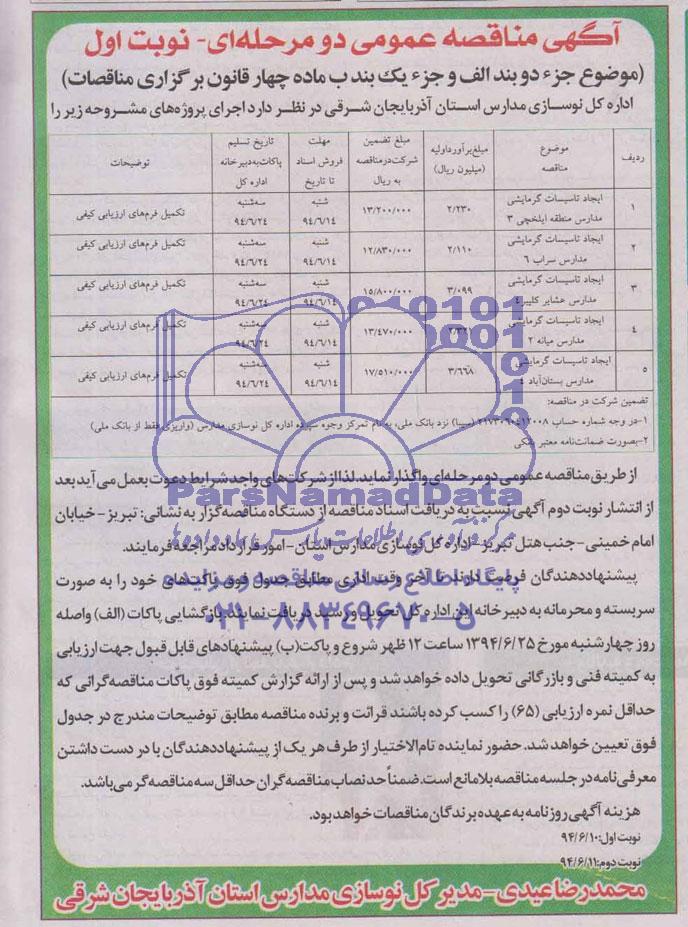 آگهی مناقصه عمومی دو مرحله‌ای- نوبت اول
(موضوع جزء دو بند الف و جزء یک بند ب ماده چهار قانون برگزاری مناقصات)
اداره کل نوسازی مدارس استان آذربایجان شرقی در نظر دارد اجرای پروژه‌های مشروحه زیر را
ردیف موضوع مناقصه مبلغ برآورد اولیه (میلیون ریال) مبلغ تضمین شرکت در مناقصه به ریال مهلت فروش اسناد تا تاریخ تاریخ تسلیم پاکات به دبیرخانه اداره کل توضیحات
۱ ایجاد تاسیسات گرمایشی مدارس منطقه ایلخچی ۳ ۲/۲۳۰ ۱۳/۲۰۰/۰۰۰ شنبه ۹٤/٦/۱٤ سه‌شنبه ۹٤/٦/۲٤ تکمیل فرم‌های ارزیابی کیفی
۲ ایجاد تاسیسات گرمایشی مدارس سراب ٦ ۲/۱۱۰ ۱۲/۸۳۰/۰۰۰ شنبه ۹٤/٦/۱٤ سه‌شنبه ۹٤/٦/۲٤ تکمیل فرم‌های ارزیابی کیفی
۳ ایجاد تاسیسات گرمایشی مدارس عشایر کلیبر ٤ ۳/۰۹۹ ۱۵/۸۰۰/۰۰۰ شنبه ۹٤/٦/۱٤ سه‌شنبه ۹٤/٦/۲٤ تکمیل فرم‌های ارزیابی کیفی
٤ ایجاد تاسیسات گرمایشی مدارس میانه ۲ ۱۳/٤۷۰/۰۰۰ شنبه ۹٤/٦/۱٤ سه‌شنبه ۹٤/٦/۲٤ تکمیل فرم‌های ارزیابی کیفی
۵ ایجاد تاسیسات گرمایشی مدارس بستان‌آباد ٤ ۳/٦٦۸ ۱۷/۵۱۰/۰۰۰ شنبه ۹٤/٦/۱٤ سه‌شنبه ۹٤/٦/۲٤ تکمیل فرم‌های ارزیابی کیفی
تضمین شرکت در مناقصه:
۱-در وجه شماره حساب (سیبا) نزد بانک ملی، به نام تمرکز وجوه سپرده اداره کل نوسازی مدارس (واریزی فقط از بانک ملی)
۲-بصورت ضمانت‌نامه معتبر بانکی
از طریق مناقصه عمومی دو مرحله‌ای واگذار نماید. لذا از شرکت‌های واجد شرایط دعوت بعمل می‌آید بعد
از انتشار نوبت دوم آگهی نسبت به دریافت اسناد مناقصه از دستگاه مناقصه‌گزار به نشانی: تبریز- خیابان
امام خمینی- جنب هتل تبریز- اداره کل نوسازی مدارس استان- امور قرارداد مراجعه فرمایند.
پیشنهاددهندگان فرصت دارند تا آخر وقت اداری مطابق جدول فوق پاکت‌های خود را به صورت
سربسته و محرمانه به دبیرخانه این اداره کل تحویل و رسید دریافت نمایند. بازگشایی پاکات (الف) واصله
روز چهارشنبه مورخ ۱۳۹٤/٦/۲۵ ساعت ۱۲ ظهر شروع و پاکت(ب) پیشنهادهای قابل قبول جهت ارزیابی
به کمیته فنی و بازرگانی تحویل داده خواهد شد و پس از ارائه گزارش کمیته فوق پاکات مناقصه‌گرانی که
حداقل نمره ارزیابی (٦۵) را کسب کرده باشند قرائت و برنده مناقصه مطابق توضیحات مندرج در جدول
فوق تعیین خواهد شد. حضور نماینده تام‌الاختیار از طرف هر یک از پیشنهاددهندگان با در دست داشتن
معرفی‌نامه در جلسه مناقصه بلامانع است. ضمناً حد نصاب مناقصه‌گران حداقل سه مناقصه‌گر می‌باشد.
هزینه آگهی روزنامه به عهده برندگان مناقصات خواهد بود.
نوبت اول: ۹٤/٦/۱۰
نوبت دوم: ۹٤/٦/۱۱
محمدرضا عیدی- مدیر کل نوسازی مدارس استان آذربایجان شرقی
ParsNamadData
پایگاه اطلاع رسانی مناقصه و مزایده
۰۲۱-۸۸۳۴۹۶۷۰-۵